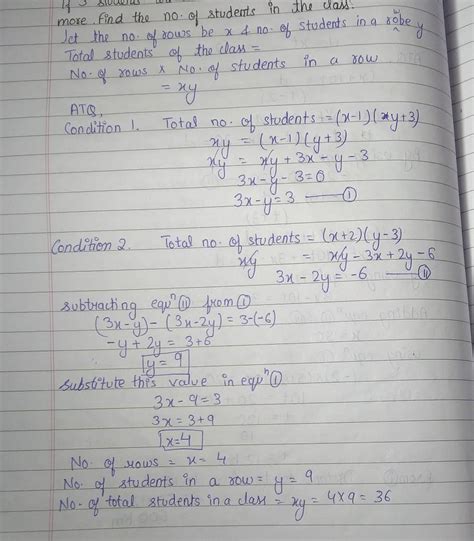 If 3 students
more. Find the no. of students in the class.
Let the no. of rows be x & no. of students in a robe y
Total students of the class =
No. of rows × No. of students in a row
= xy
ATQ,
Condition 1. Total no. of students = (x-1)(xy+3)
xy = (x-1)(y+3)
xy = xy + 3x - y - 3
3x - y - 3 = 0
3x - y = 3 — ①
Condition 2. Total no. of students = (x+2)(y-3)
xy = xy - 3x + 2y - 6
3x - 2y = -6 — ⑪
subtracting equⁿ ⑪ from ①
(3x-y) - (3x-2y) = 3-(-6)
-y + 2y = 3+6
y = 9
substitute this value in equⁿ ①
3x - 9 = 3
3x = 3+9
x=4
No. of rows = x = 4
No. of students in a row = y = 9
No. of total students in a class = xy = 4×9 = 36